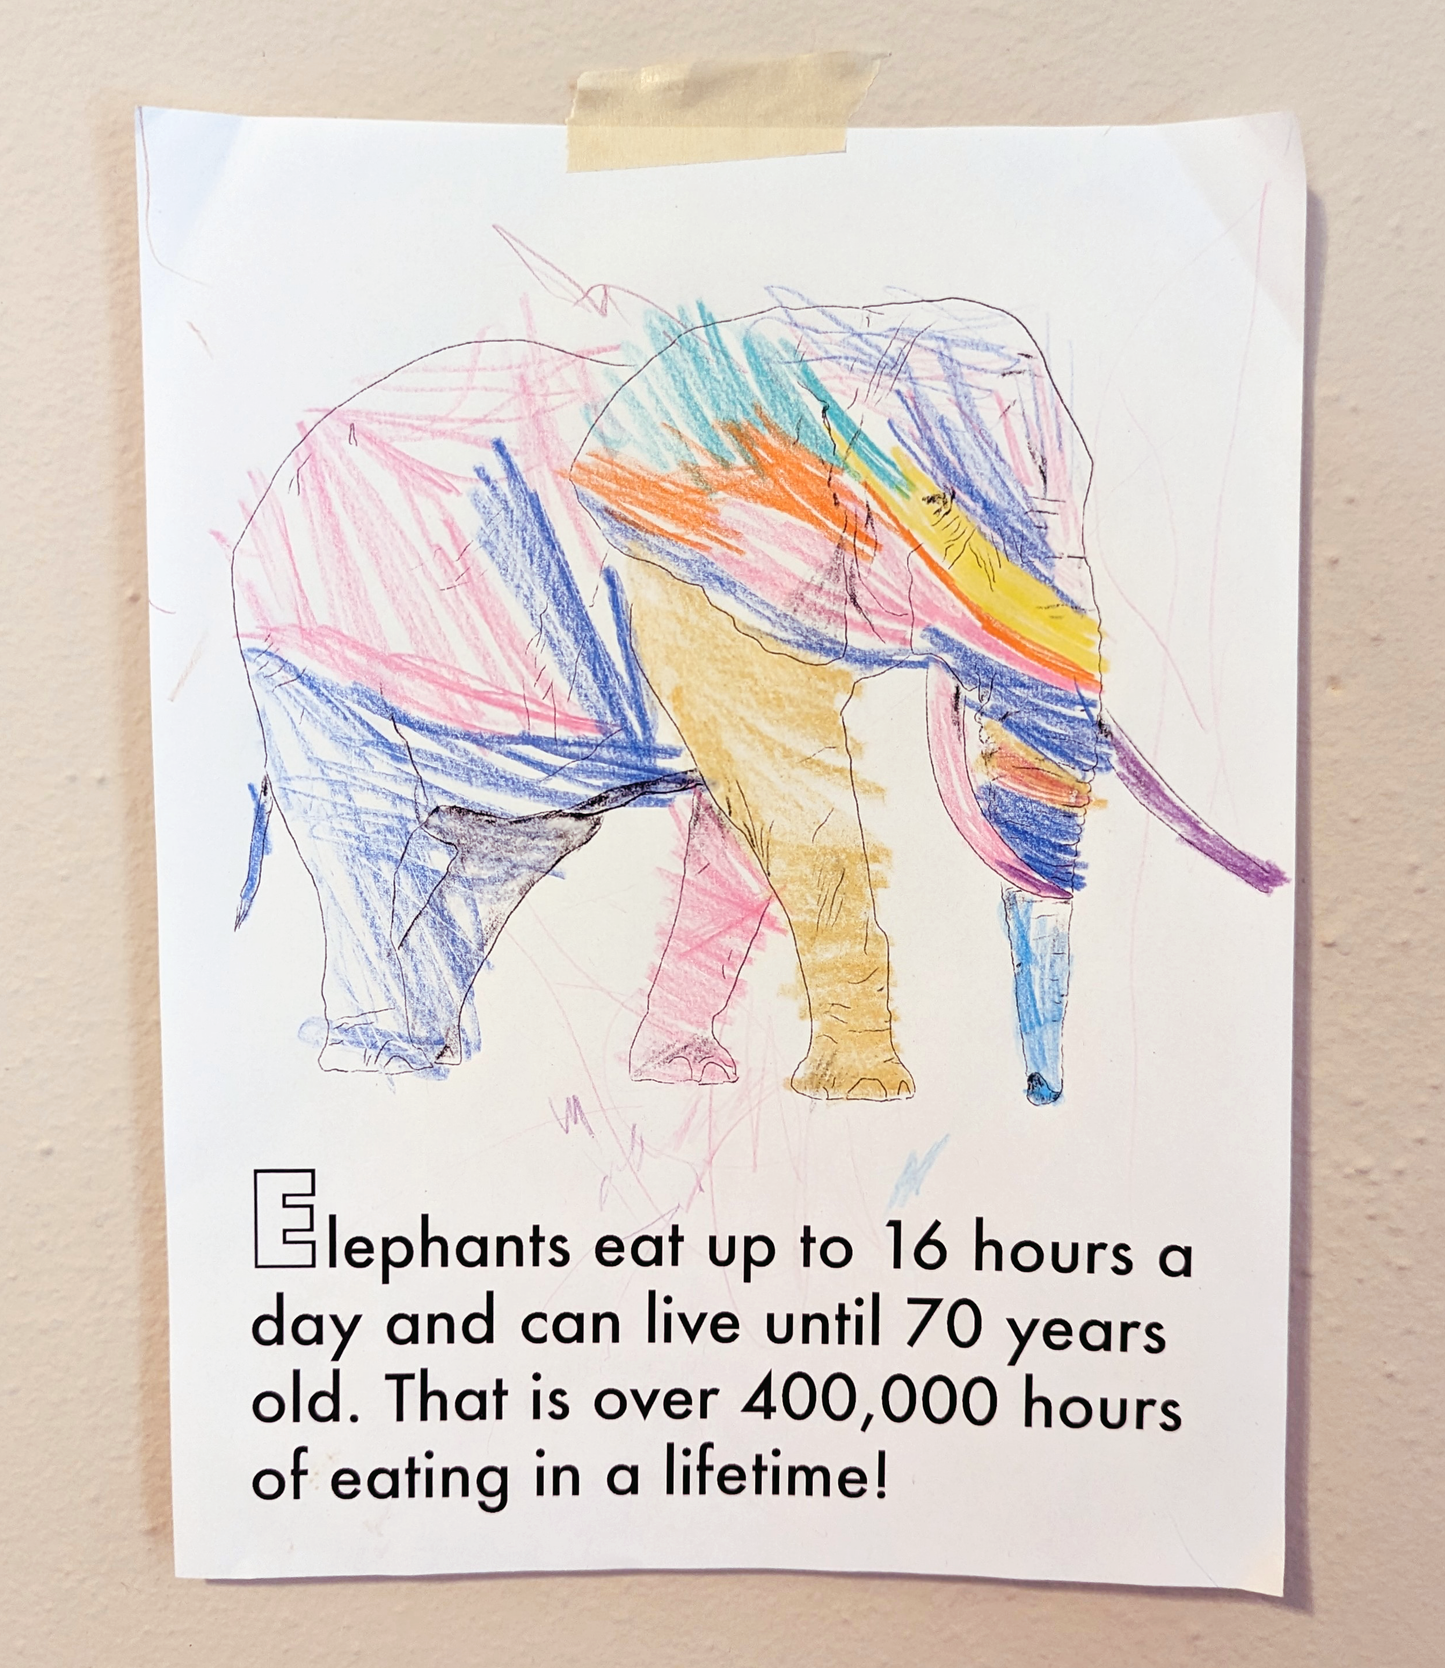 Elephants eat up to 16 hours a
day and can live until 70 years
old. That is over 400,000 hours
of eating in a lifetime!